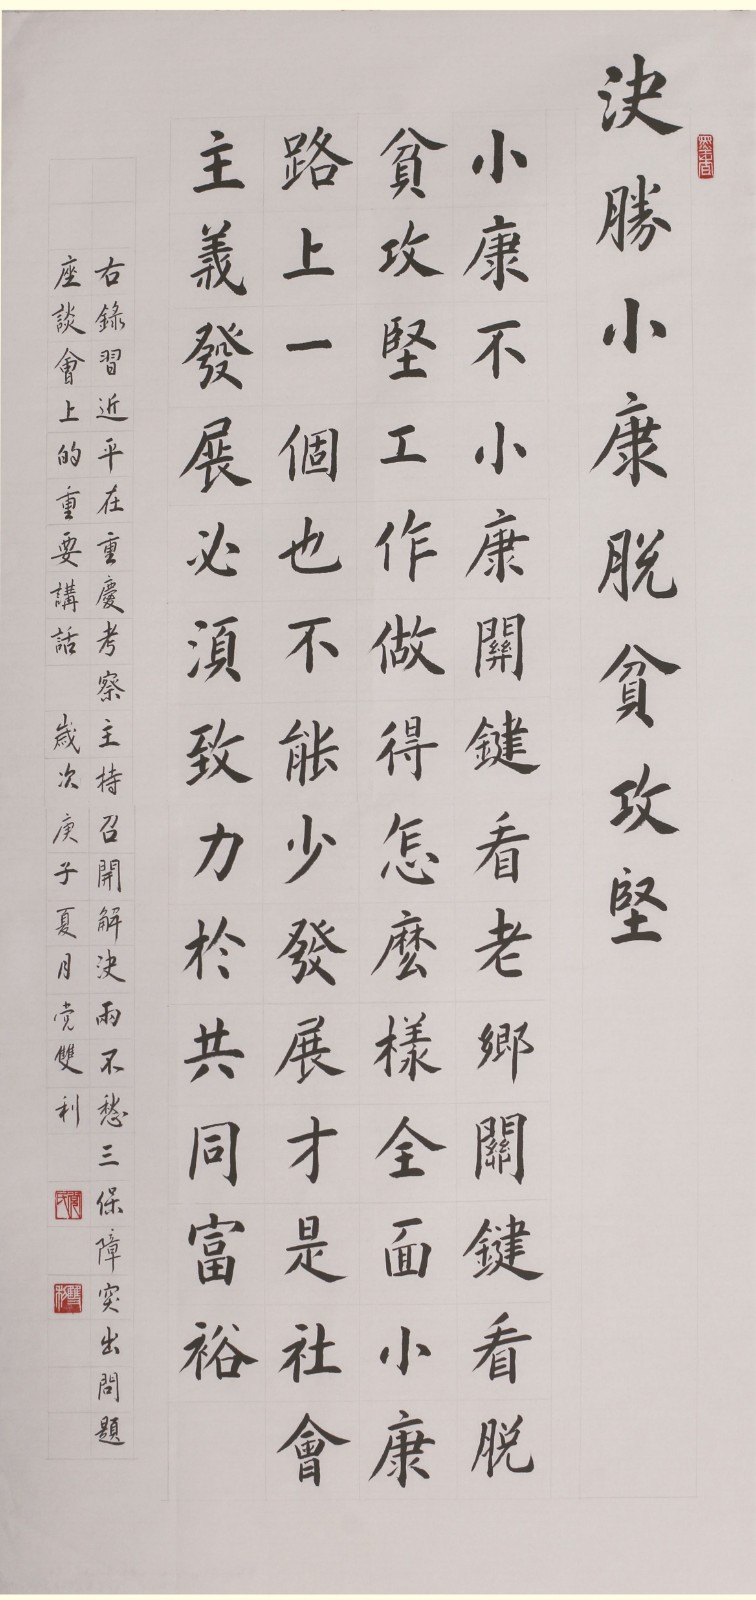 決勝小康脫貧攻堅
小康不小康關鍵看老鄉關鍵看脫
貧攻堅工作做得怎麼樣全面小康
路上一個也不能少發展才是社會
主義發展必須致力於共同富裕
右錄習近平在重慶考察主持召開解決兩不愁三保障突出問題
座談會上的重要講話 歲次庚子夏月党雙利